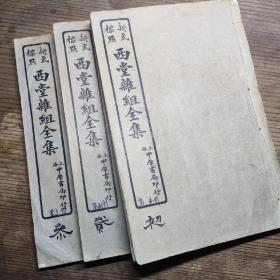 新式
標點
西堂雜組全集
上海
中原書局印行
叁
新式
標點
西堂雜組全集
上海
中原書局印行
貳
新式
標點
西堂雜組全集
上海
中原書局印行
初